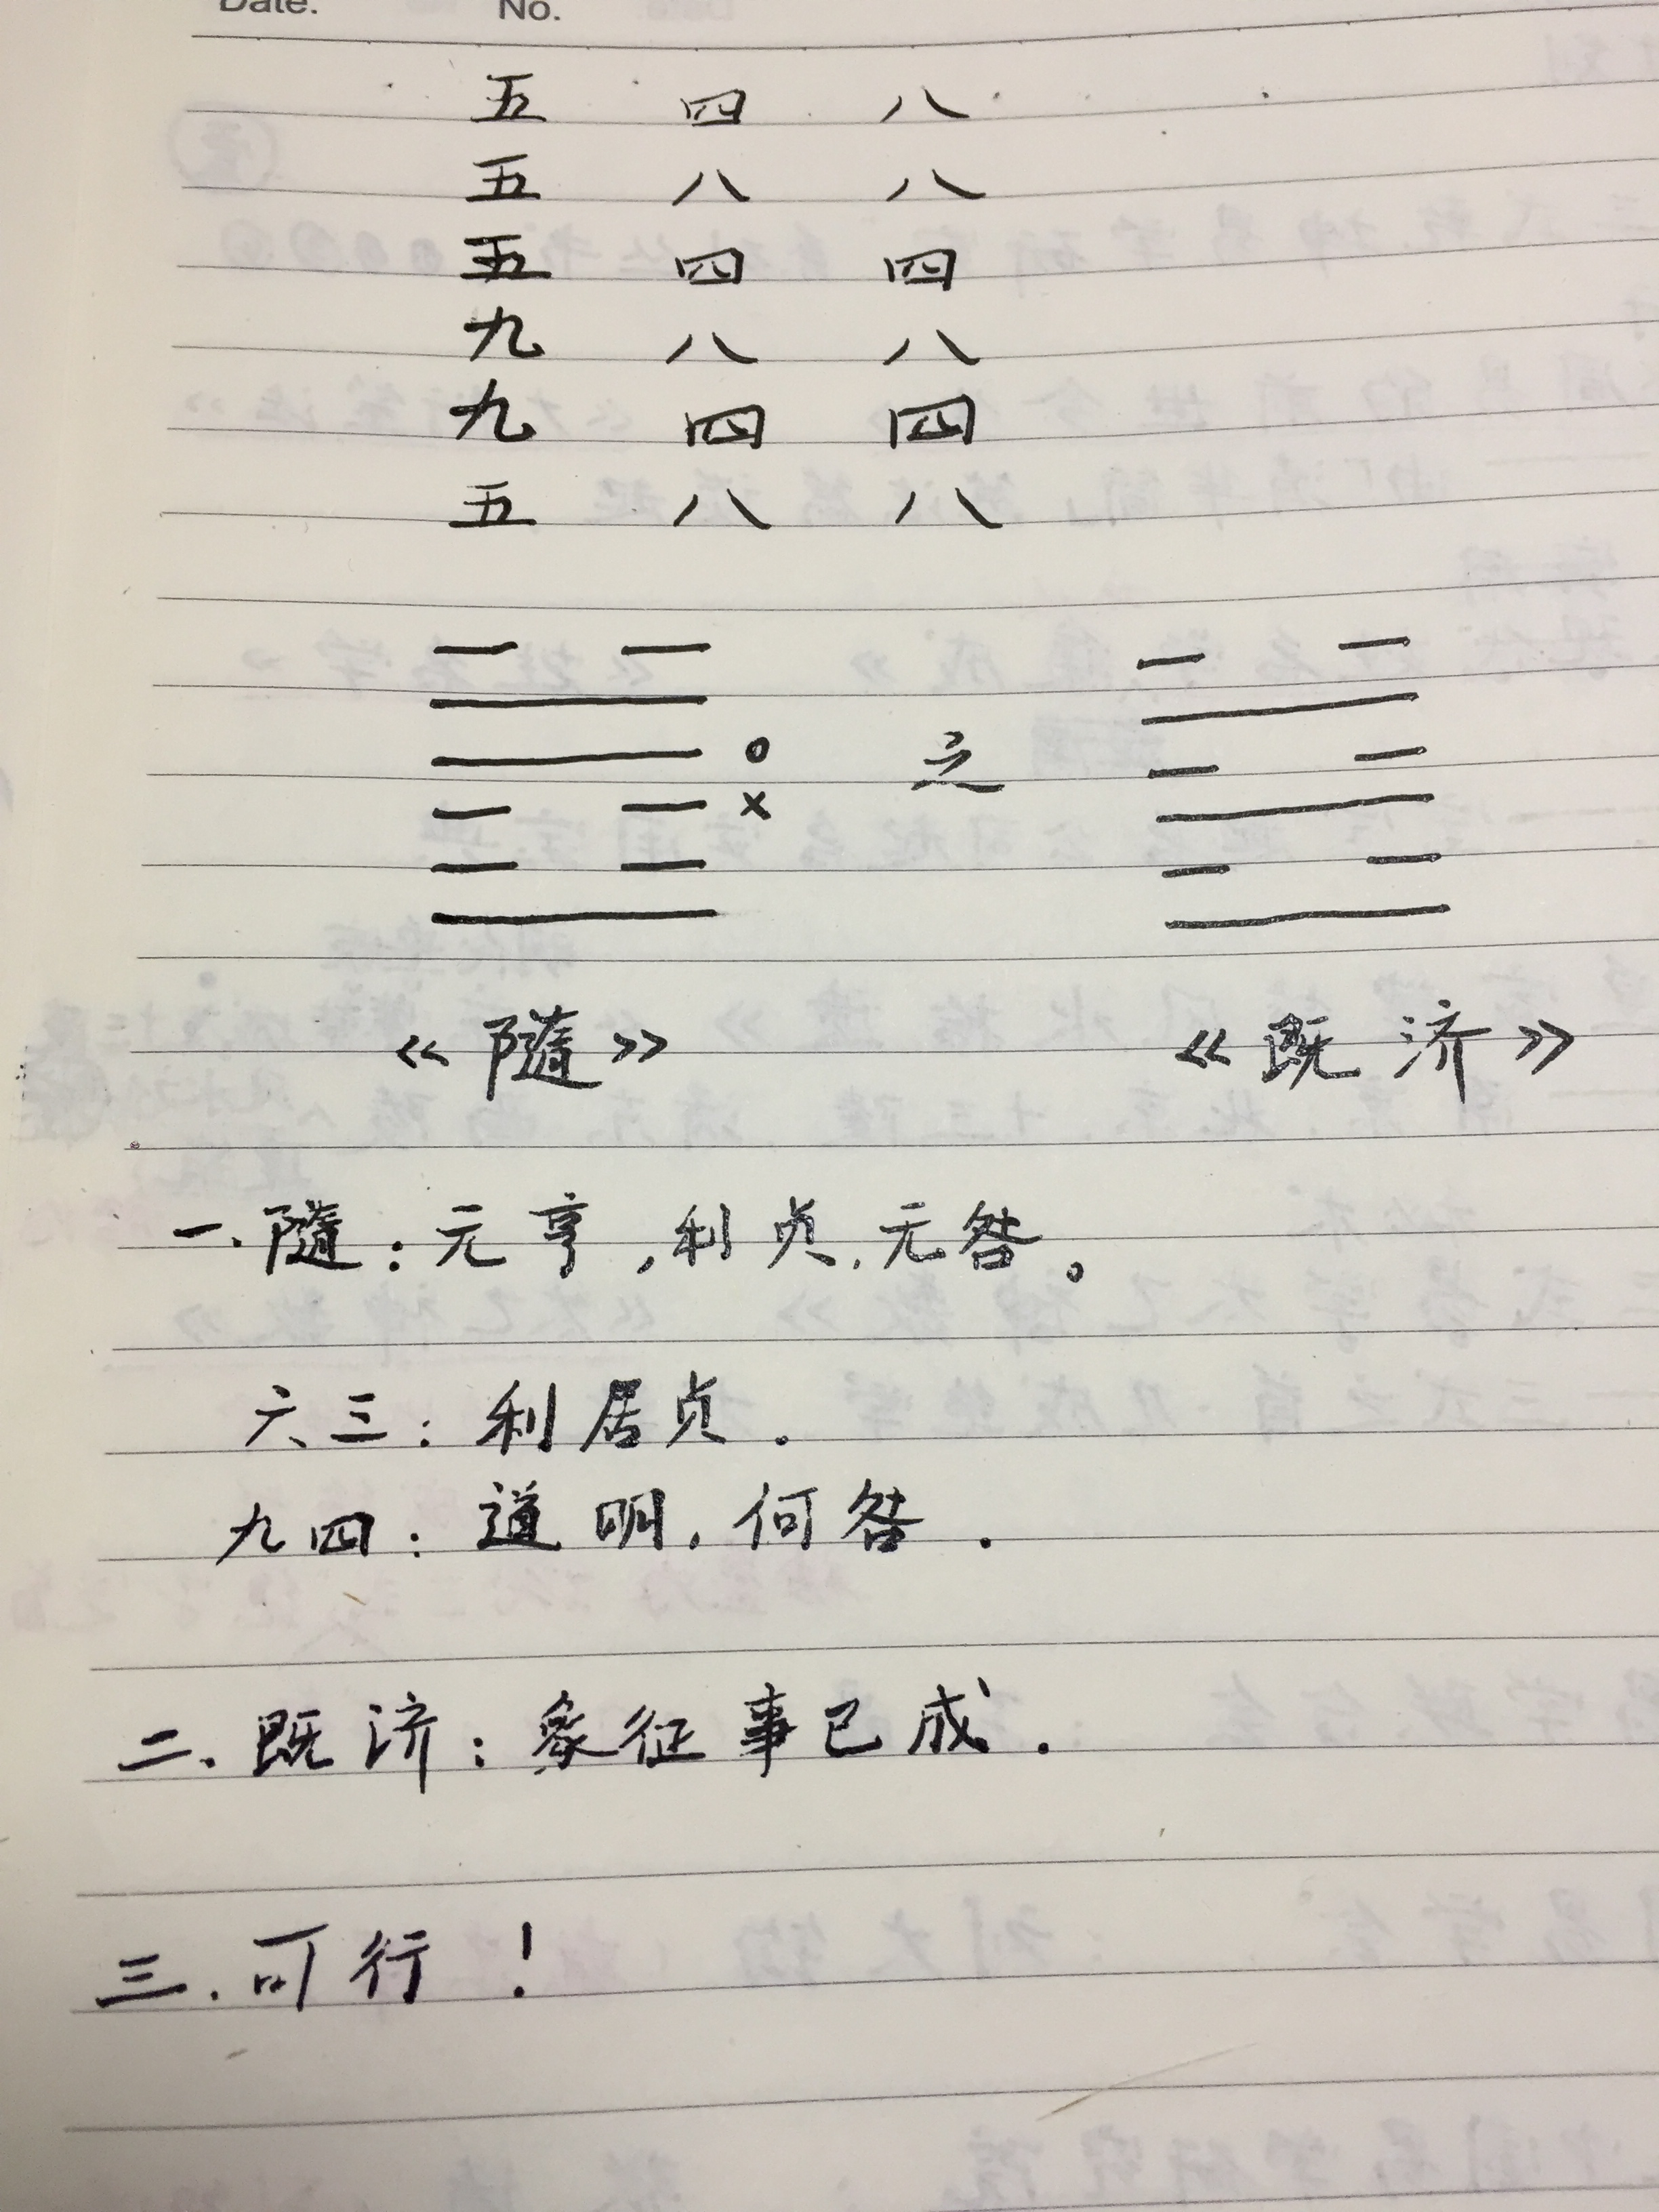 Date. No.
五 四 八
五 八 八
五 四 四
九 八 八
九 四 四
五 八 八
之
《隨》 《既济》
一.隨:元亨,利贞,无咎。
六三:利居贞.
九四:道明,何咎.
二、既济:象征事已成.
三.可行!